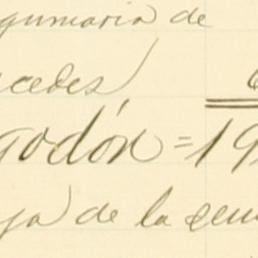 gumaria de
cedes
godón = 19
ya de la